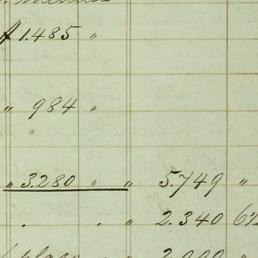 1.485 "
" 984 "
" 3.280 " " 5.749 "
" 2.340
2.000 "